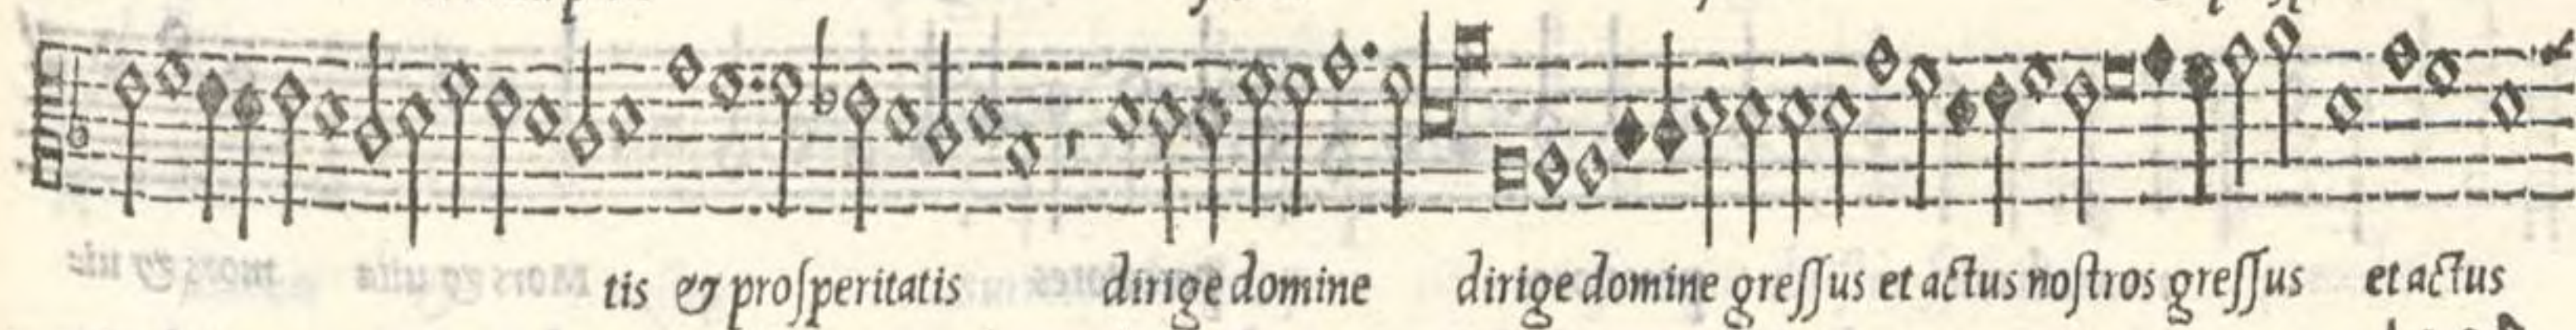 tis & proſperitatis dirige domine dirige domine greſſus et actus noſtros greſſus et actus